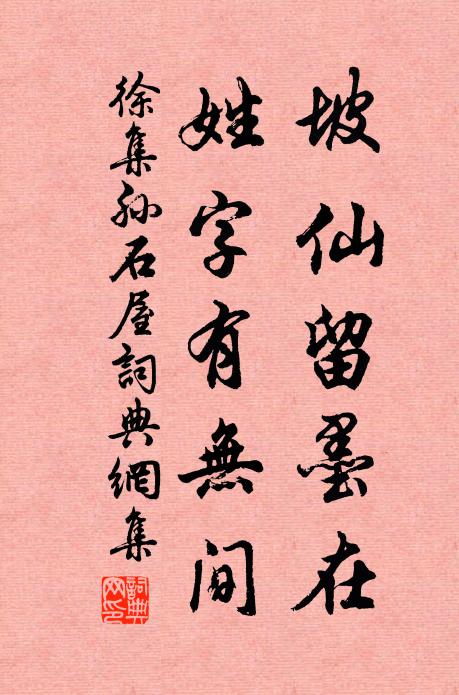 坡仙留墨在
姓字有無間
徐集孫石屋詞典網集
詞典网印